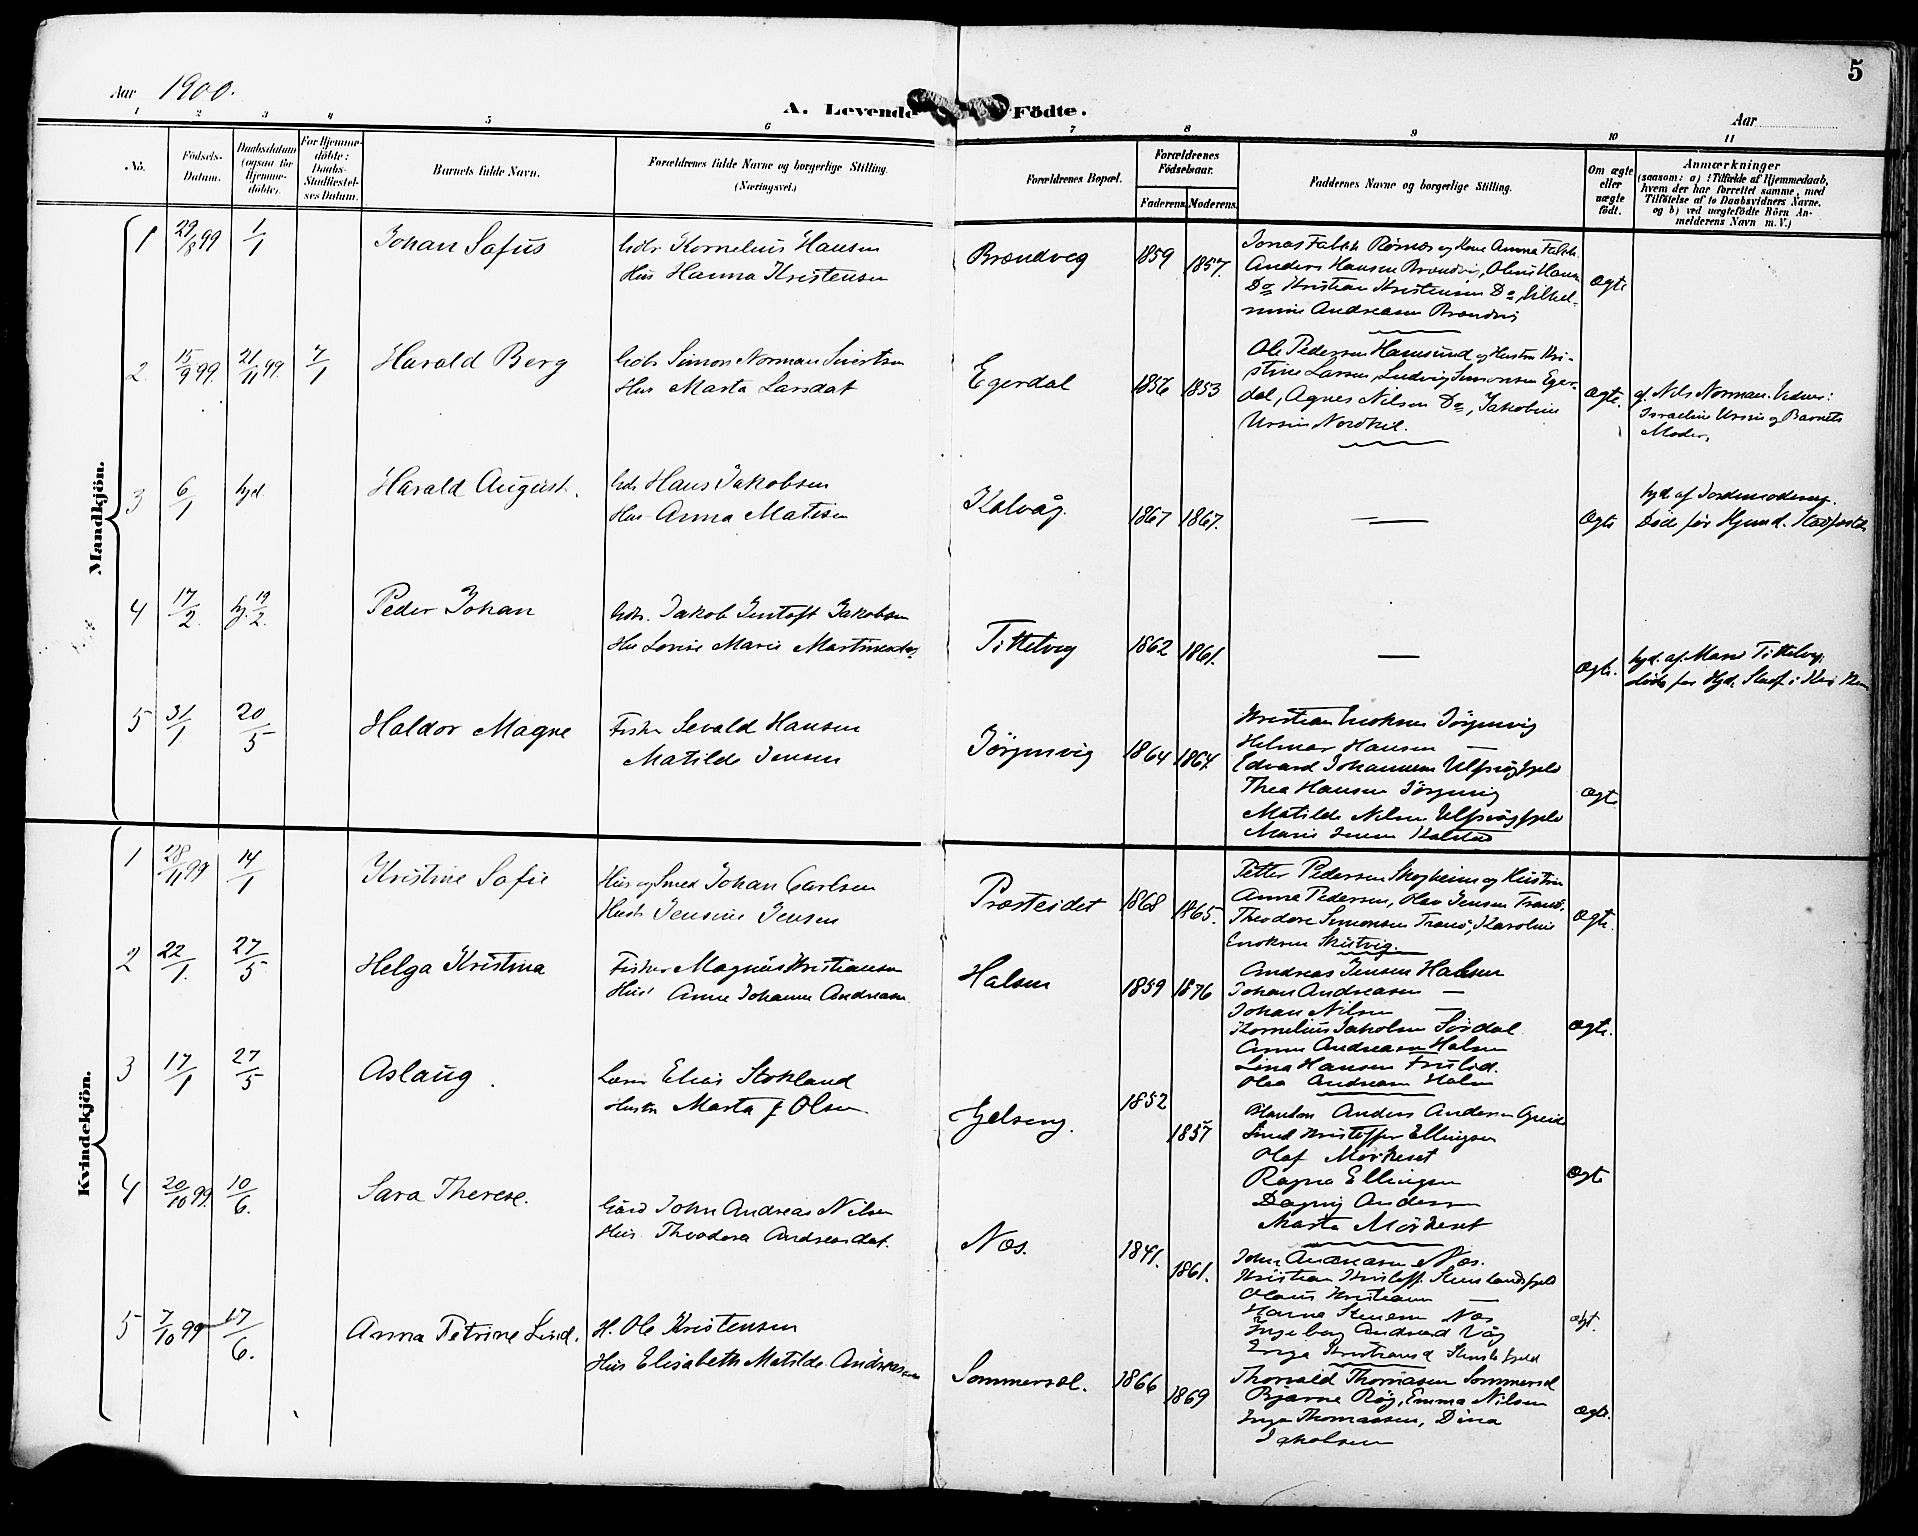 5
Aar 1900.
A. Levende Födte.
Aar
1 2 3 4 5 6 7 8 9 10 11
No.
Födsels-Datum.
Daabsdatum (ogsaa for Hjemmedöbte).
For Hjemmedöbte: Daabs-Stadfæstelses Datum.
Barnets fulde Navn.
Forældrenes fulde Navne og borgerlige Stilling.
(Næringsvei.)
Forældrenes Bopæl.
Forældrenes Födselsaar.
Faderens. Moderens.
Faddernes Navne og borgerlige Stilling.
Om ægte eller uægte födt.
Anmærkninger
(saasom: a) i Tilfælde af Hjemmedaab,
hvem der har forrettet samme, med
Tilföielse af to Daabsvidners Navne.
og b) ved uægtefödte Börn An-
melderens Navn m. V.)
Mandkjön.
1 29/8 99 1/1 Johan Sofus
Gdbr Kornelius Hansen
Hus Hanna Kristensen
Brændveg 1859 1857.
Jonas Falch Rørnes og Kone Anna Falch
Anders Hansen Brændvig, Oluf Hansen
Do Kristian Kristensen Do, Vilhel-
mine Andreasen Brændvig
Ægte
2. 15/9 99. 21/11 99. 7/1 Harald Berg
Gdbr Simon Norman Sivertsen
Hus Marta Larsdat
Egerdal 1856 1853
Ole Pedersen Hamsund og Hustru Kri-
stine Larsen, Ludvig Simonsen Eger-
dal, Agnes Nilsen Do, Jakobine
Ursin Nordkil.
Ægte.
af Nils Norman. Vidner:
Israeline Ursin og Barnets
Moder.
3 6/1 hjd. Harald August.
Gdbr Hans Jakobsen
Hus Anna Matisen
Kalvåg. 1867 1867.
—
Ægte
hjd. af Jordemoderen.
Död för Hjemd. Stadfæstelse
4 17/2. hj. 19/2. Peder Johan
Gdbr. Jakob Gustoft Jakobsen
Hus Lovise Marie Martinesdat
Tittelveg 1862 1861.
—
Ægte.
hjd. af Marie Tittelvg.
5 31/1 20/5 Haldor Magne
Fisker Sevald Hansen
Matilde Jensen
Jörgensvig 1864 1864.
Kristian Enoksen Jörgensvig
Helmar Hansen —
Edvard Johannesen Ulfsvågfjeld
Thea Hansen Jörgensvig
Matilde Nilsen Ulfsvågfjeld
Marie Jensen Kalstad
Ægte
Kvindekjön.
1 28/11 99 14/1 Kristine Sofie
Hus og Smed Johan Carlsen
Hustr Jensine Jensen
Præsteidet 1868 1865.
Petter Pedersen Skogheim og Hustru
Anna Pedersen, Olav Jensen Tranö,
Theodore Simonsen Tranö, Karoline
Enoksen Skutvig.
Ægte.
2 22/1. 27/5 Helga Kristina
Fisker Magnus Kristiansen
Hus Anne Johanne Andreasen.
Halsen 1859 1876
Andreas Jensen Halsen
Johan Andreasen —
Johan Nilsen —
Kornelius Jakobsen Sördal.
Anne Andreasen Halsen
Lina Hansen
Olea Andreasen Halsen
Ægte.
3 17/1 27/5 Aslaug.
Lærer Elias Stokland
Hustru Marta f Olsen
Gjelseng. 1852 1857
Handelsm Anders Andersen
Smed Kristoffer Ellingsen
Olaf Mörkeset
Ragna Ellingsen
Dagny Andersen
Marta Mörkeset
Ægte
4 20/10 99. 10/6. Sara Therese.
Gård John Andreas Nilsen
Hus Theodora Andreasdat.
Næs. 1841. 1861.
John Andreasen Næs.
Kristian Kristoff. Stenslandsfjeld
Olaus Kristiansen —
Hanna Stensen Næs
Ingeborg Andreasd Våg
Inga Kristiansd
Ægt.
5 7/10 99 17/6. Anna Petrine Lind.
H. Ole Kristensen
Hus Elisabeth Matilde Andreassen
Sommersel. 1866 1869
Thorvald Thomasen Sommersel
Bjarne Røg, Emma Nilsen
Inga Thomassen, Dina
Jakobsen
Ægte.